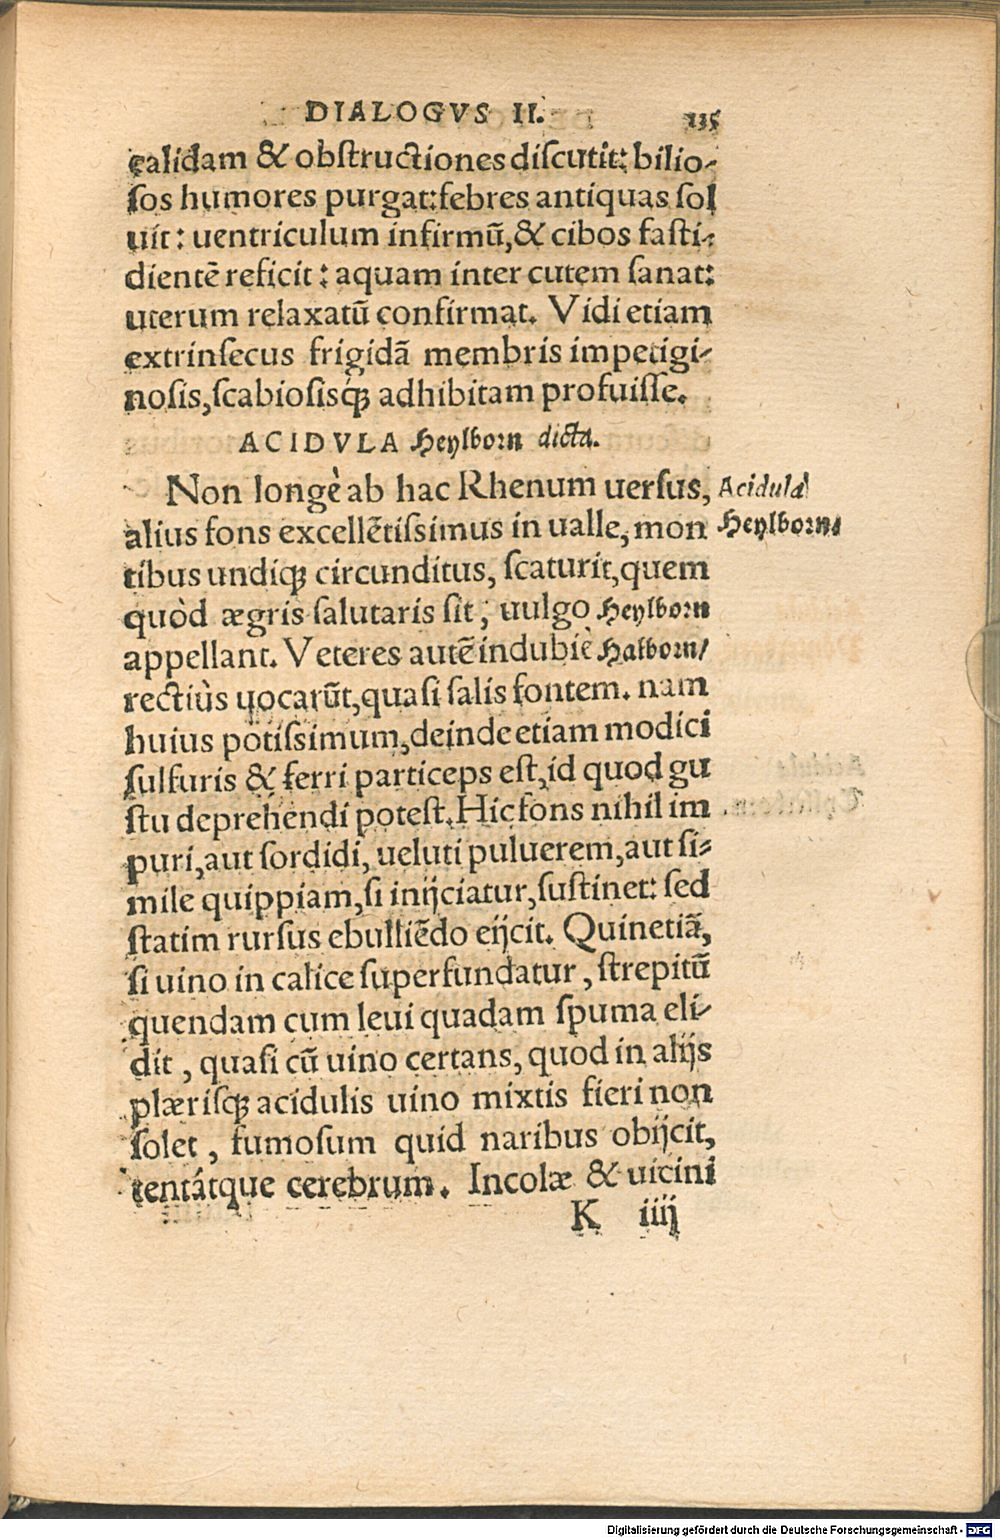 DIALOGVS II. 135
calidam & obſtructiones diſcutit: bilio-
ſos humores purgat: febres antiquas ſol
uit: uentriculum infirmū, & cibos faſti-
dientē reficit: aquam inter cutem ſanat:
uterum relaxatū confirmat. Vidi etiam
extrinſecus frigidã membris impetigi-
noſis, ſcabioſisq́ꝫ adhibitam profuiſſe.
ACIDVLA Heylborn dicta.
Non longè ab hac Rhenum uerſus,
Acidula
alius fons excellētiſsimus in ualle, mon
Heylborn/
tibus undiqꝫ circunditus, ſcaturit, quem
quòd ægris ſalutaris ſit, uulgo Heylborn
appellant. Veteres autē indubiè Halborn/
rectiùs uocarūt, quaſi ſalis fontem. nam
huius potiſsimum, deinde etiam modici
ſulfuris & ferri particeps eſt, id quod gu
ſtu deprehendi poteſt. Hic fons nihil im
puri, aut ſordidi, ueluti puluerem, aut ſi-
mile quippiam, ſi inijciatur, ſuſtinet: ſed
ſtatim rurſus ebulliēdo eijcit. Quinetiã,
ſi uino in calice ſuperfundatur, ſtrepitū
quendam cum leui quadam ſpuma eli-
dit, quaſi cū uino certans, quod in alijs
plæriſqꝫ acidulis uino mixtis fieri non
ſolet, fumoſum quid naribus obijcit,
tentátque cerebrum. Incolæ & uicini
K iiij
Digitalisierung gefördert durch die Deutsche Forschungsgemeinschaft - DFG